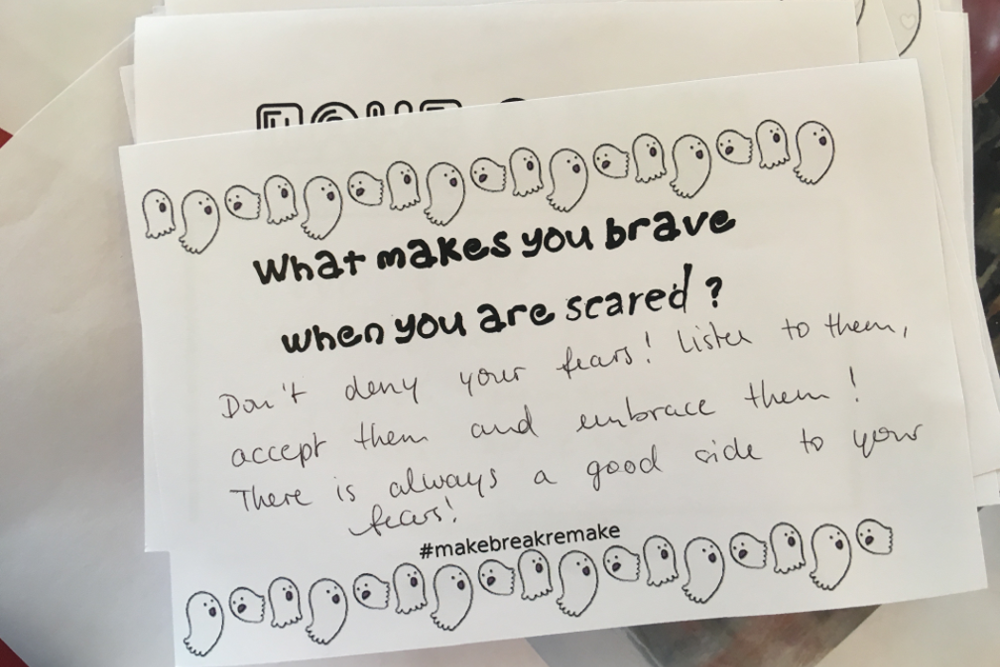 What makes you brave
when you are scared?
Don't deny your fears! Listen to them,
accept them and embrace them!
There is always a good side to your
fears!
#makebreakremake